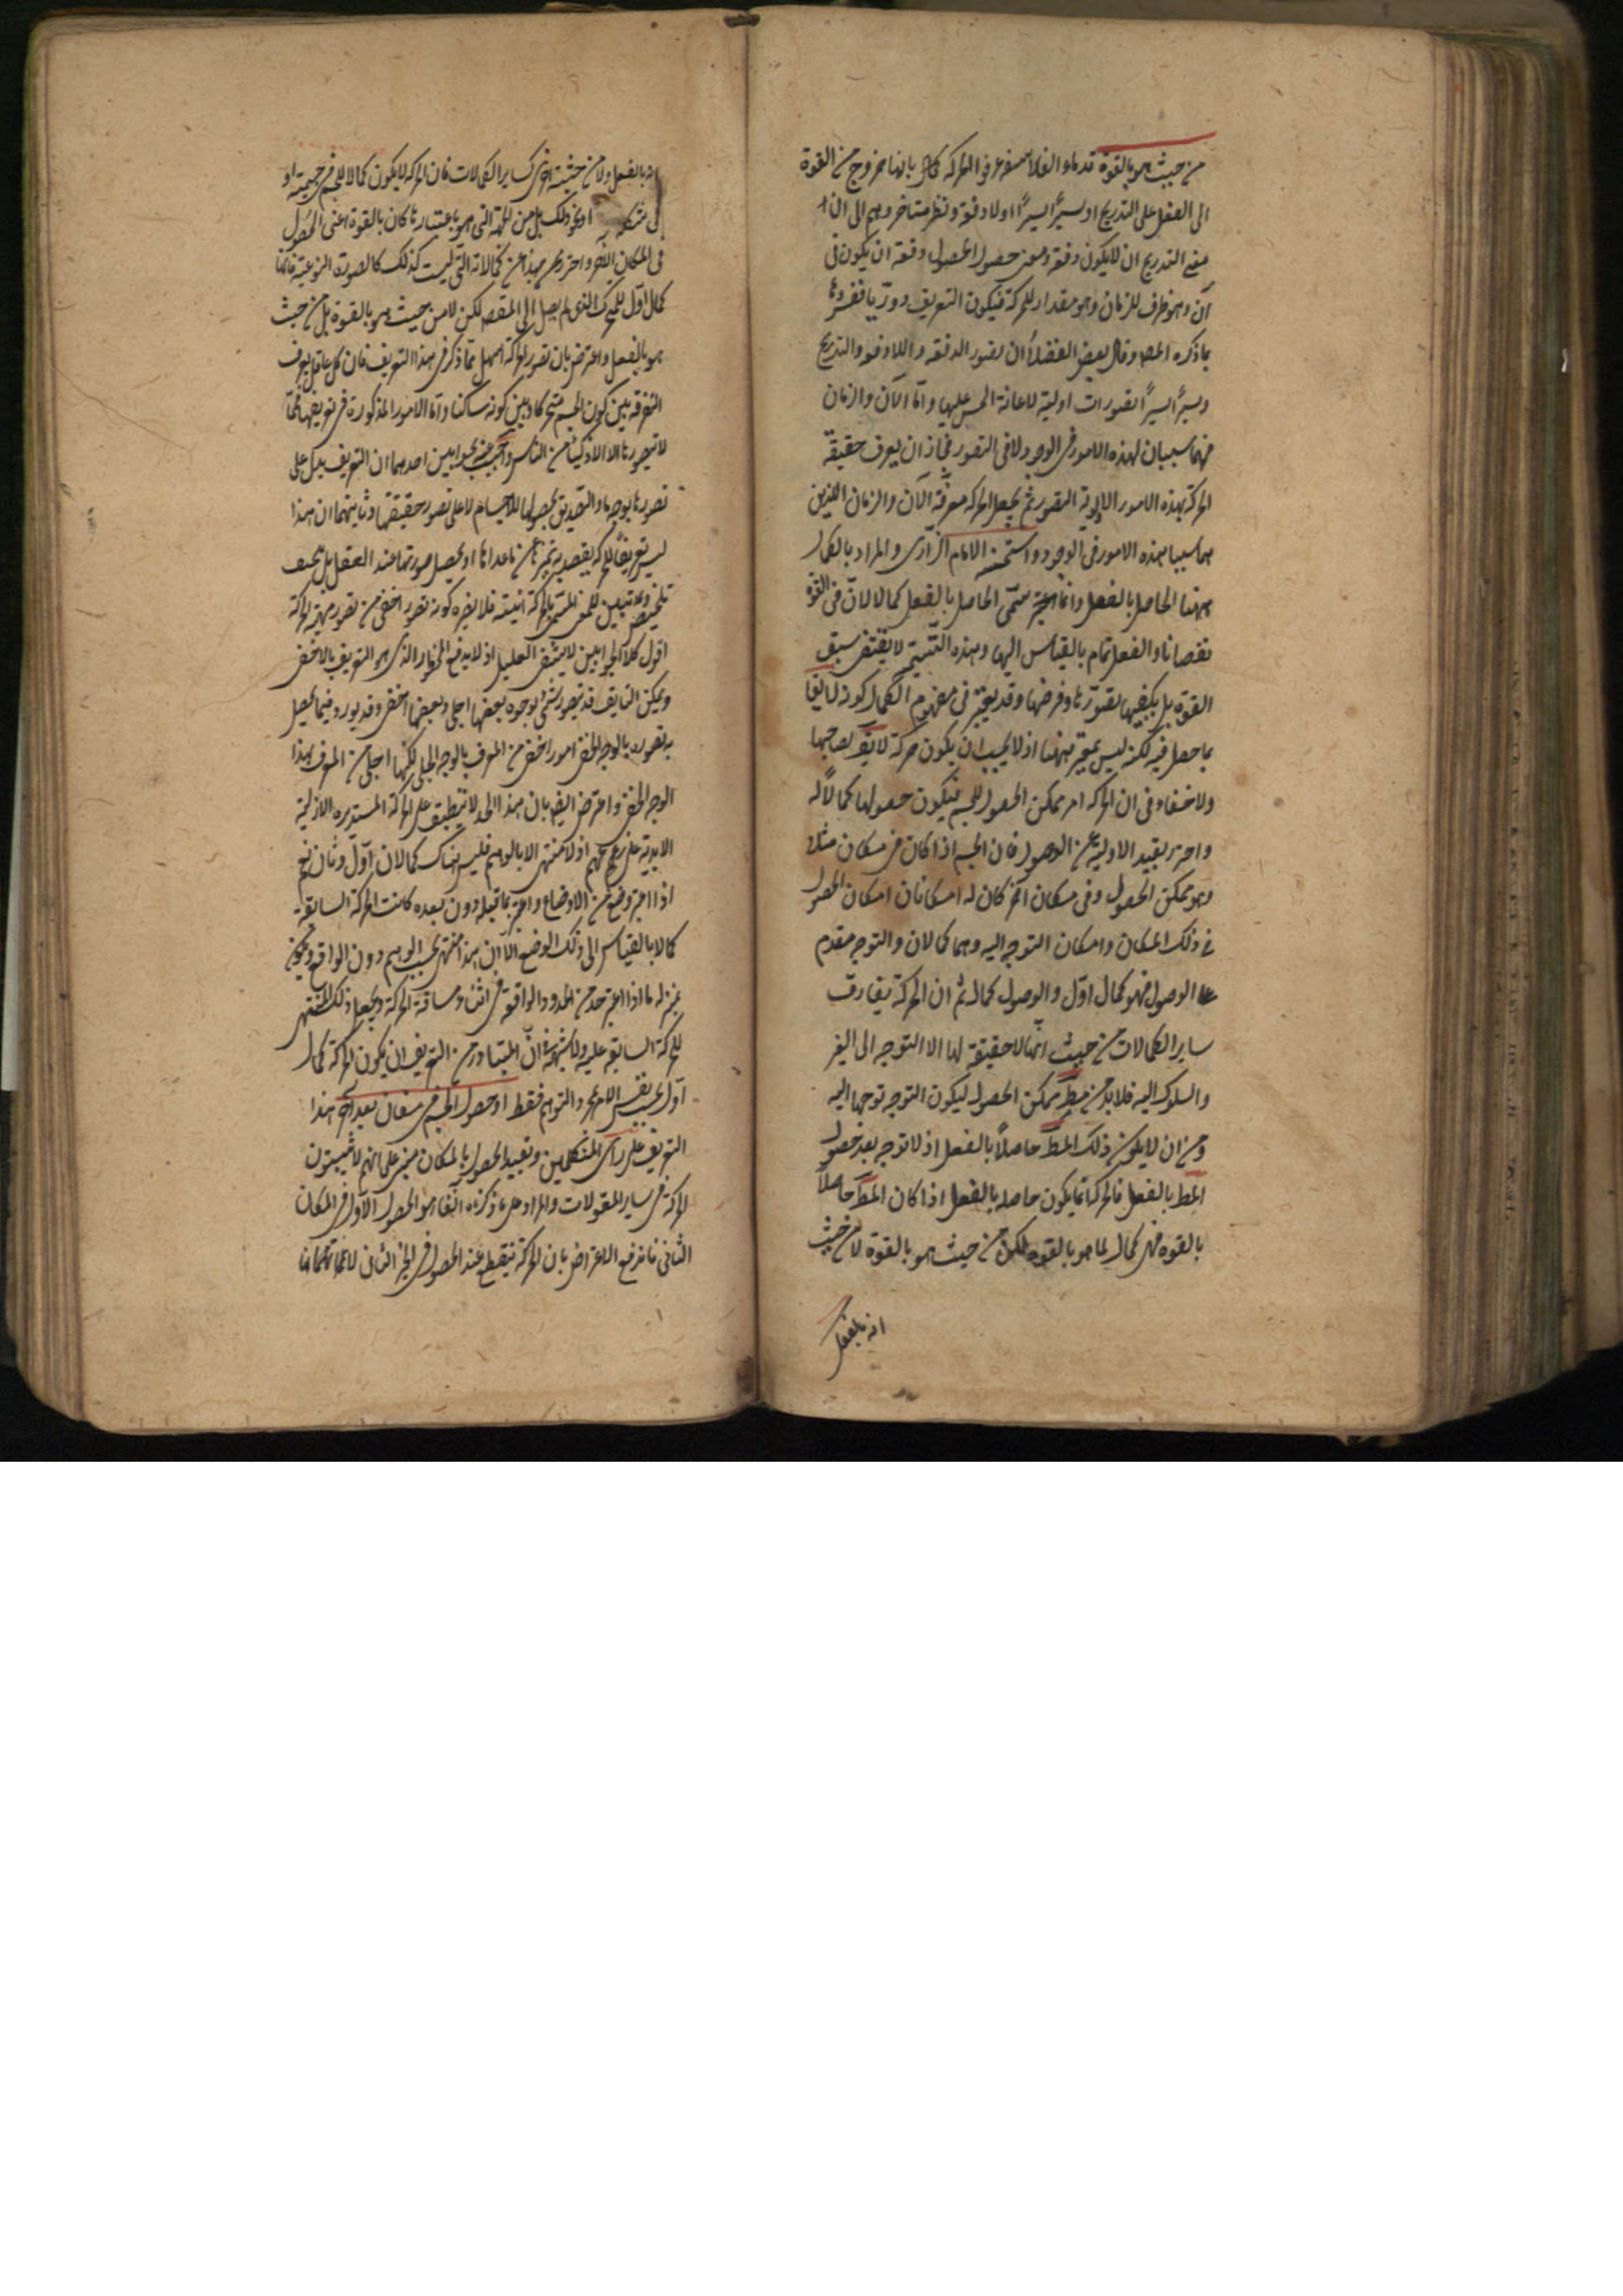 من حيث هو بالقوة قدماء الفلاسفه عرفوا الحركه بانها خروج من القوة
الى الفعل على التدريج او يسيرًا يسيرًا او لا دفعة ونظر متاخروهم الى ان
معنى التدريج ان لا يكون دفعة ومعنى حصول الحصول دفعة ان يكون فى
آن وهو طرف للزمان وهو مقدار للحركة فيكون التعريف دوريا ففسروها
بما ذكره المص وقال بعض الفضلاء ان تصور الدفعه واللادفعه والتدريج
ويسيرًا يسيرًا تصورات اولية لاعانة الحس عليها واما الآن والزمان
فهما سببان لهذه الامور فى الوجود لا فى التصور فجاز ان يعرف حقيقة
الحركة بهذه الامور الاولية التصور ثم يجعل الحركه معرفة الآن والزمان اللذين
هما سببا هذه الامور فى الوجود واستحسنه الامام الرازى والمراد بالكمال
ههنا الحاصل بالفعل وانما سمى الحاصل بالفعل كمالا لان فى القوة
نقصانا والفعل تمام بالقياس اليها وهذه التسمية لا يقتضى سبق
القوة بل يكفيها تصورها وفرضها وقد يعتبر فى مفهوم الكمال كونه لايقا
بما حصل فيه لكنه ليس بمعتبر ههنا اذ لا يجب ان يكون حركة لايقة بصاحبها
ولا خفاء فى ان الحركه امر ممكن الحصول للجسم فيكون حصولها كمالًا له
واحترز بقيد الاولية عن الوصول فان الجسم اذا كان فى مكان مثلا
وهو ممكن الحصول وفى مكان آخر كان له امكانان امكان الحصول
فى ذلك المكان وامكان التوجه اليه وهما كمالان والتوجه مقدم
على الوصول فهو كمال اوّل والوصول كمال ثم ان الحركة يفارق
ساير الكمالات من حيث انها لا حقيقة لها الا التوجه الى الغير
والسلوك اليه فلا بد من مط ممكن الحصول ليكون التوجه توجها اليه
ومن ان لا يكون ذلك المط حاصلًا بالفعل اذ لا توجه بعد حصول
المط بالفعل فالحركة انما يكون حاصله بالفعل اذا كان المط حاصلًا
بالقوه فهى كمال لما هو بالقوه لكن من حيث هو بالقوة لا من حيث
انه بالفعل
انه بالفعل ولا من حيثية اخرى كساير الكمالات فان الحركه لا يكون كمالا للجسم فى جسميته او
فى شكله او نحو ذلك بل من الجهة التى هو باعتبارها كان بالقوة اعنى الحصول
فى المكان الآخر واحترز بهذا عن كمالاته التى ليست كذلك كالصورة النوعية فانها
كمال اوّل للمتحرك الذى لم يصل الى المقصد لكن لا من حيث هو بالقوة بل من حيث
هو بالفعل واعترض بان تصور الحركة اسهل مما ذكر فى هذا التعريف فان كل عاقل يعرف
التفرقة بين كون الجسم متحركا وبين كونه ساكنا واما الامور المذكورة فى تعريفها فمما
لا يتصورها الا الاذكياء من الناس واجيب عنه بجوابين احدهما ان التعريف يدل على
تصورها بوجه ما والتصديق بحصولها للاجسام لا على تصور حقيقتها وثانيهما ان هذا
ليس تعريفًا للحركه يقصد به تميزها عن ما عداها او تحصيل صورتها عند العقل بل هو
تلخيص وتبيين للمعنى المسمى بالحركة فلا يضره كونه تصور اخفى من تصور مهية الحركة
اقول كلا الجوابين لا يشفى العليل اذ لا يدفع المحذور الذى هو التعريف بالاخفى
ويمكن ان يقال قد يتصور شئ بوجوه بعضها اجلى وبعضها اخفى وقد يورد فيما يحصل
به تصوره بالوجه الخفى امور اخفى من المعرف بالوجه الجلى لكنها اجلى من المعرف بهذا
الوجه الخفى واعترض ايضا بان هذا الحد لا ينطبق على الحركة المستديره الازلية
الابدية على زعمهم اذ لا منتهى الا بالوهم فليس هناك كمالان اوّل وثان نعم
اذا اعتبر وضع من الاوضاع واعتبر ما قبله دون بعده كانت الحركة السابقة
كمالا بالقياس الى ذلك الوضع الا ان هذا منتهى بحسب الوهم دون الواقع
بمنزله ما اذا اعتبر حد من الحدود الواقعة فى اثناء مسافة الحركة ويجعل ذلك منتهى
للحركة السابقة عليه ولا شبهة ان المتبادر من التعريف ان يكون الحركة كمال
اوّل بحسب نفس الامر لا بمجرد التوهم فقط او حصول الجسم فى مكان بعد آخر هذا
التعريف على راى المتكلمين وتقييد الحصول بالمكان مبنى على انهم لا يثبتون
الحركة فى ساير المقولات والمراد على ما ذكرناه آنفا هو الحصول الاول فى المكان
الثانى فاندفع الاعتراض بان الحركة ينقطع عند الحصول فى الحيز الثانى